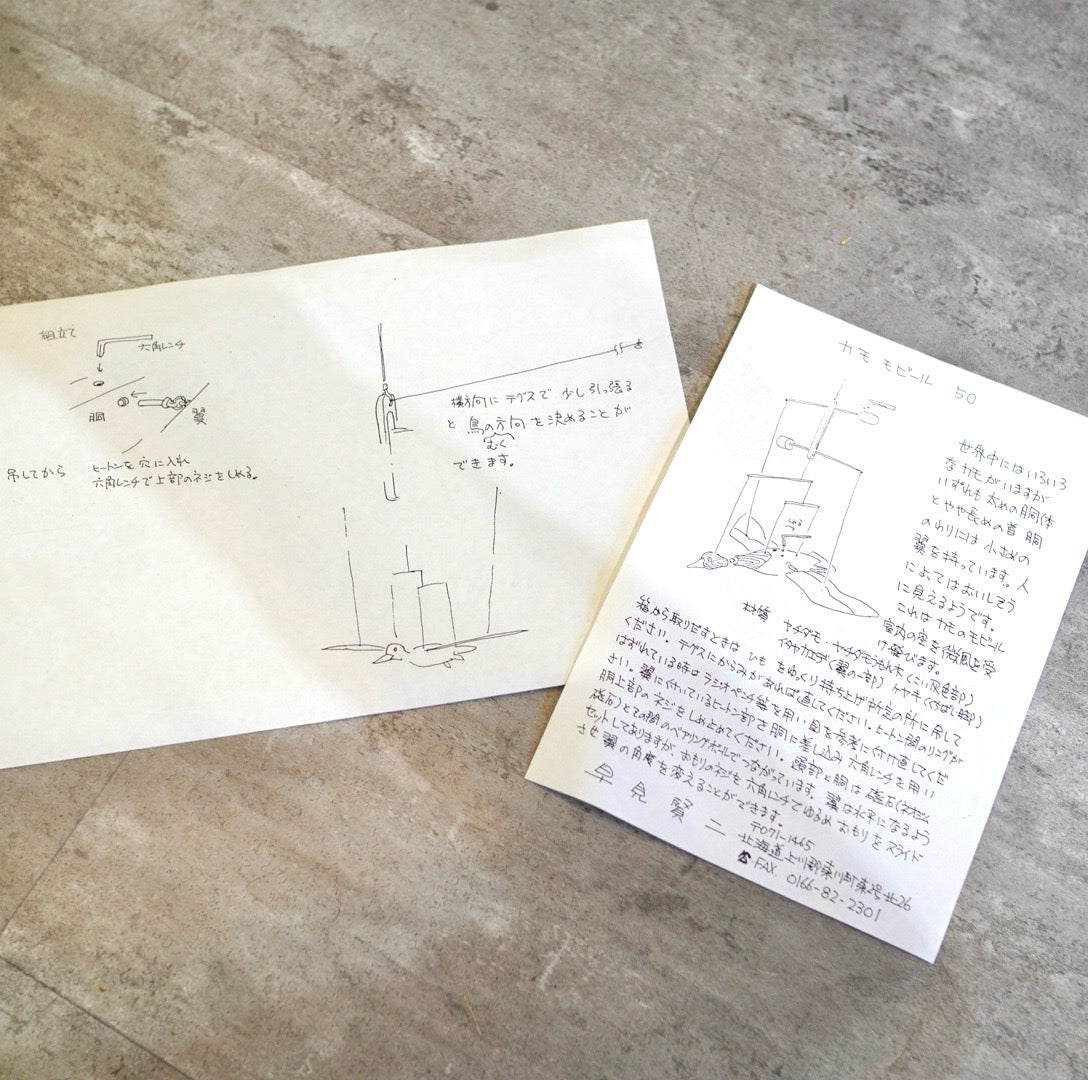 組立て
六角レンチ
胴
翼
吊してから
ヒートンを穴に入れ
六角レンチで上部のネジをしめる。
横方向にテグスで少し引っ張る
と鳥の方向を決めることが
むく
できます。
カモ モビール 50
世界中にはいろいろ
なカモがいますが
いずれも太めの胴体
とやや長めの首 胴
のわりには小さめの
翼を持っています。人
によってはおいしそう
に見えるようです。
これはカモのモビール
室内の空を微風を受
け飛びます。
材質 ヤチダモ・ヤチダモうもれ木(こい灰色部)
イタヤカエデ(翼の一部) ケヤキ(くちばし部)
箱から取りだすときは ひも をゆっくり持ち上げ 所定の所に吊して
ください。テグスにからみがあれば直してください。ヒートン間のリングが
はずれている時はラジオペンチ等を用い図を参考に付け直してくだ
さい。翼に付いているヒートン部を胴に差し込み 六角レンチを用い
胴上部のネジをしめとめてください。頭部と胴は磁石(ネオジム
磁石)とその間のベアリングボールでつながっています。翼は水平になるよう
セットしてありますが おもりのネジを六角レンチでゆるめ おもりをスライド
させ 翼の角度を変えることができます。
早見賢二
〒071-1465
北海道上川郡東川町東2号北26
☎・FAX 0166-82-2301